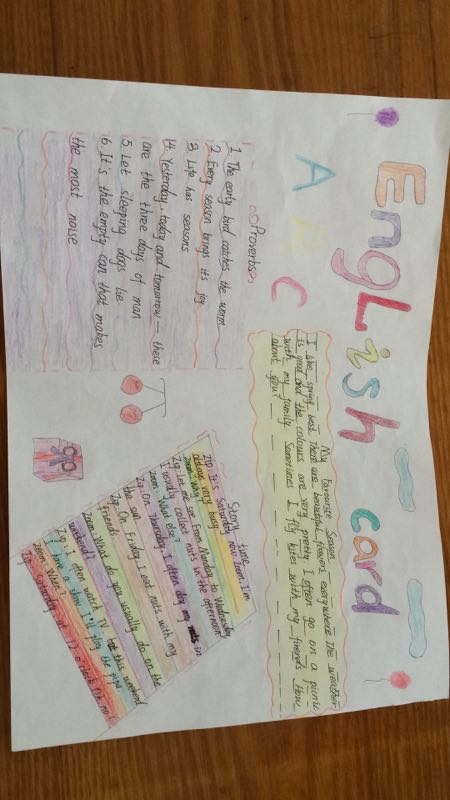 EngLish card
A B C
Proverbs
1. The early bird catches the worm
2. Every season brings it's joy
3. Life has seasons
4. Yesterday, today and tomorrow — these
are the three days of man
5. Let sleeping dogs lie
6. It's the empty can that makes
the most noise
My Favourite Season
I like spring best. There are beautiful flowers everywhere. The weather
is good and the colours are very pretty. I often go on a picnic
with my family. Sometimes I fly kites with my friends. How
about you?
Story time
Zip: It's Saturday now Zoom. I'm
always very busy
Zoom: Why?
Zip: Let me see. From Monday to Wednesday
I usually collect nuts in the afternoon
Zoom: What else?
Zip: On Thursday I often dry my nuts in
the sun. On Friday I eat nuts with my
friends
Zoom: What do you usually do on the
weekend?
Zip: I often watch TV but this weekend
I have a show I'll play the pipa
Zoom: When?
Zip: Saturday at 12 o'clock